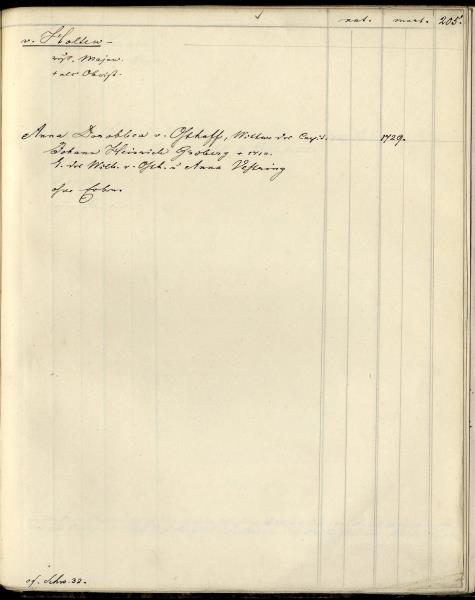 nat. mort. 205.
v. Holten –
russ. Major.
+ als Obrist.
Anna Dorothea v. Osthoff, Wittwe des Capit. 1729.
Johann Heinrich Groberg + 1710.
T. des Wilh. v. Osth. u Anna Vestring
ohne Erben.
cf. Schw. 32.